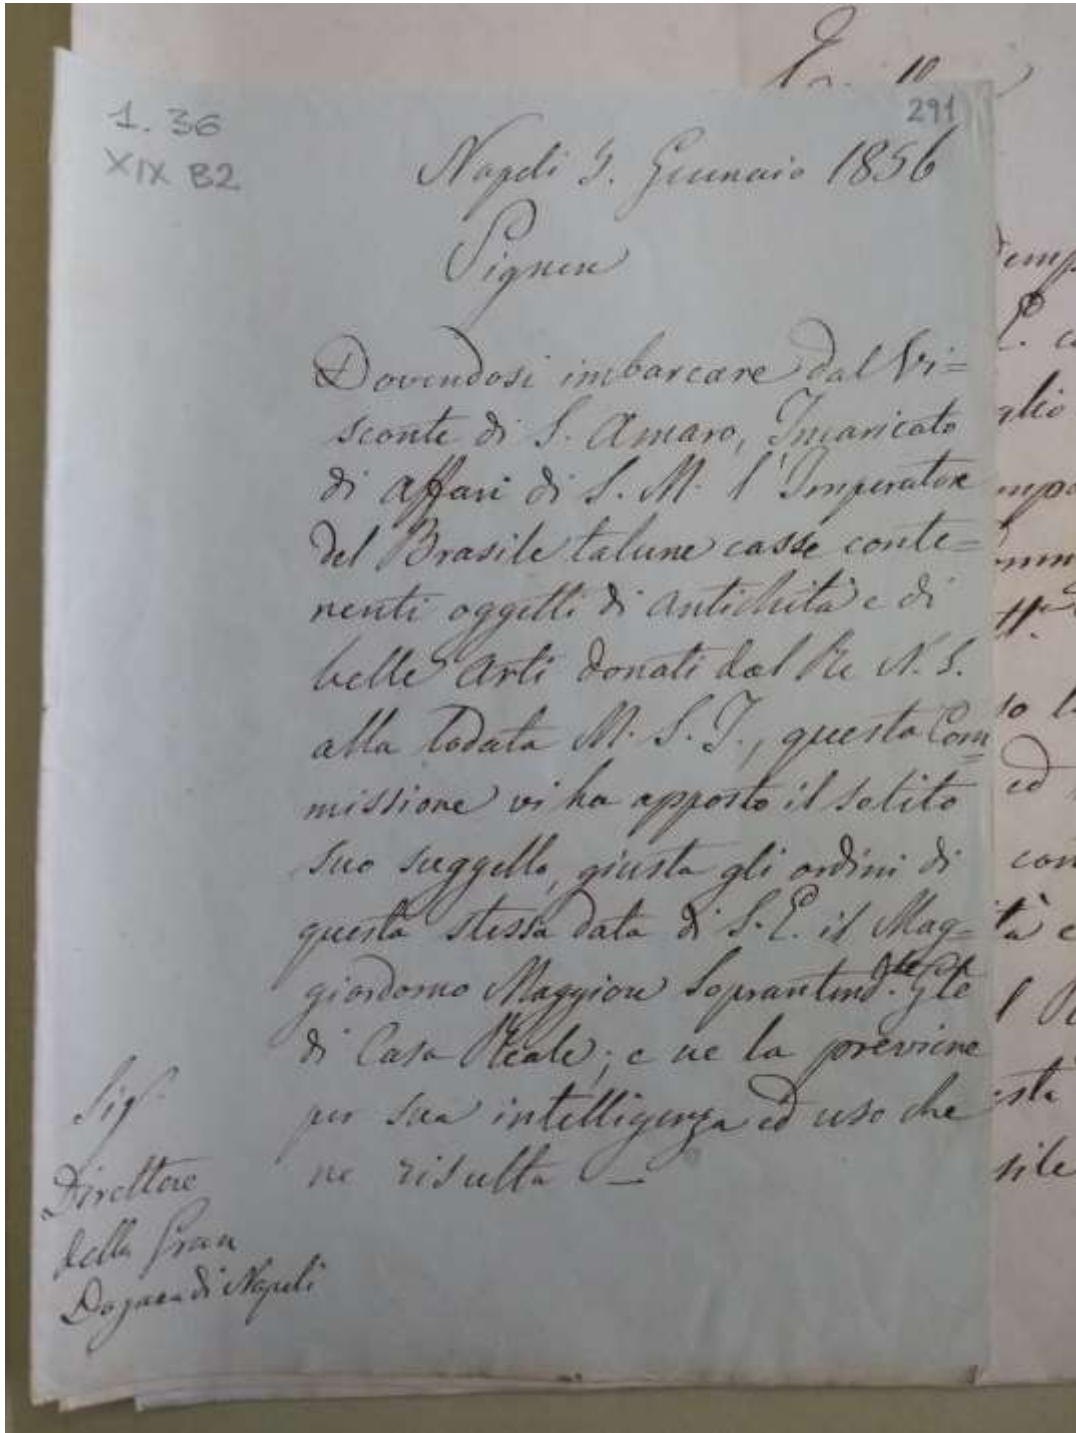 1. 36
XIX B2
10
291
Napoli 5. Gennaio 1856
Signore
Dovendosi imbarcare dal Vi=
sconte di S. Amaro, Incaricato
di Affari di S. M. l'Imperatore
del Brasile talune casse conte=
nenti oggetti di antichità e di
belle Arti donati dal Re N. S.
alla lodata M. S. I., questa Com=
missione vi ha apposto il solito
suo suggello, giusta gli ordini di
questa stessa data di S. E. il Mag=
giordomo Maggiore Soprantend.te G.le
di Casa Reale; e ne la previene
per sua intelligenza ed uso che
ne risulta —
Sig.r
Direttore
della Gran
Dogana di Napoli